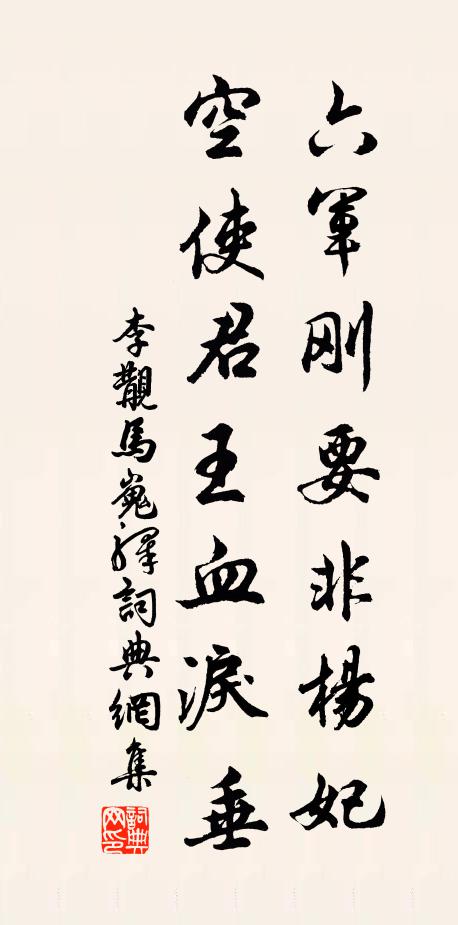 六軍刚要非楊妃
空使君王血淚垂
李覯馬嵬驛詞典網集
詞典
网印